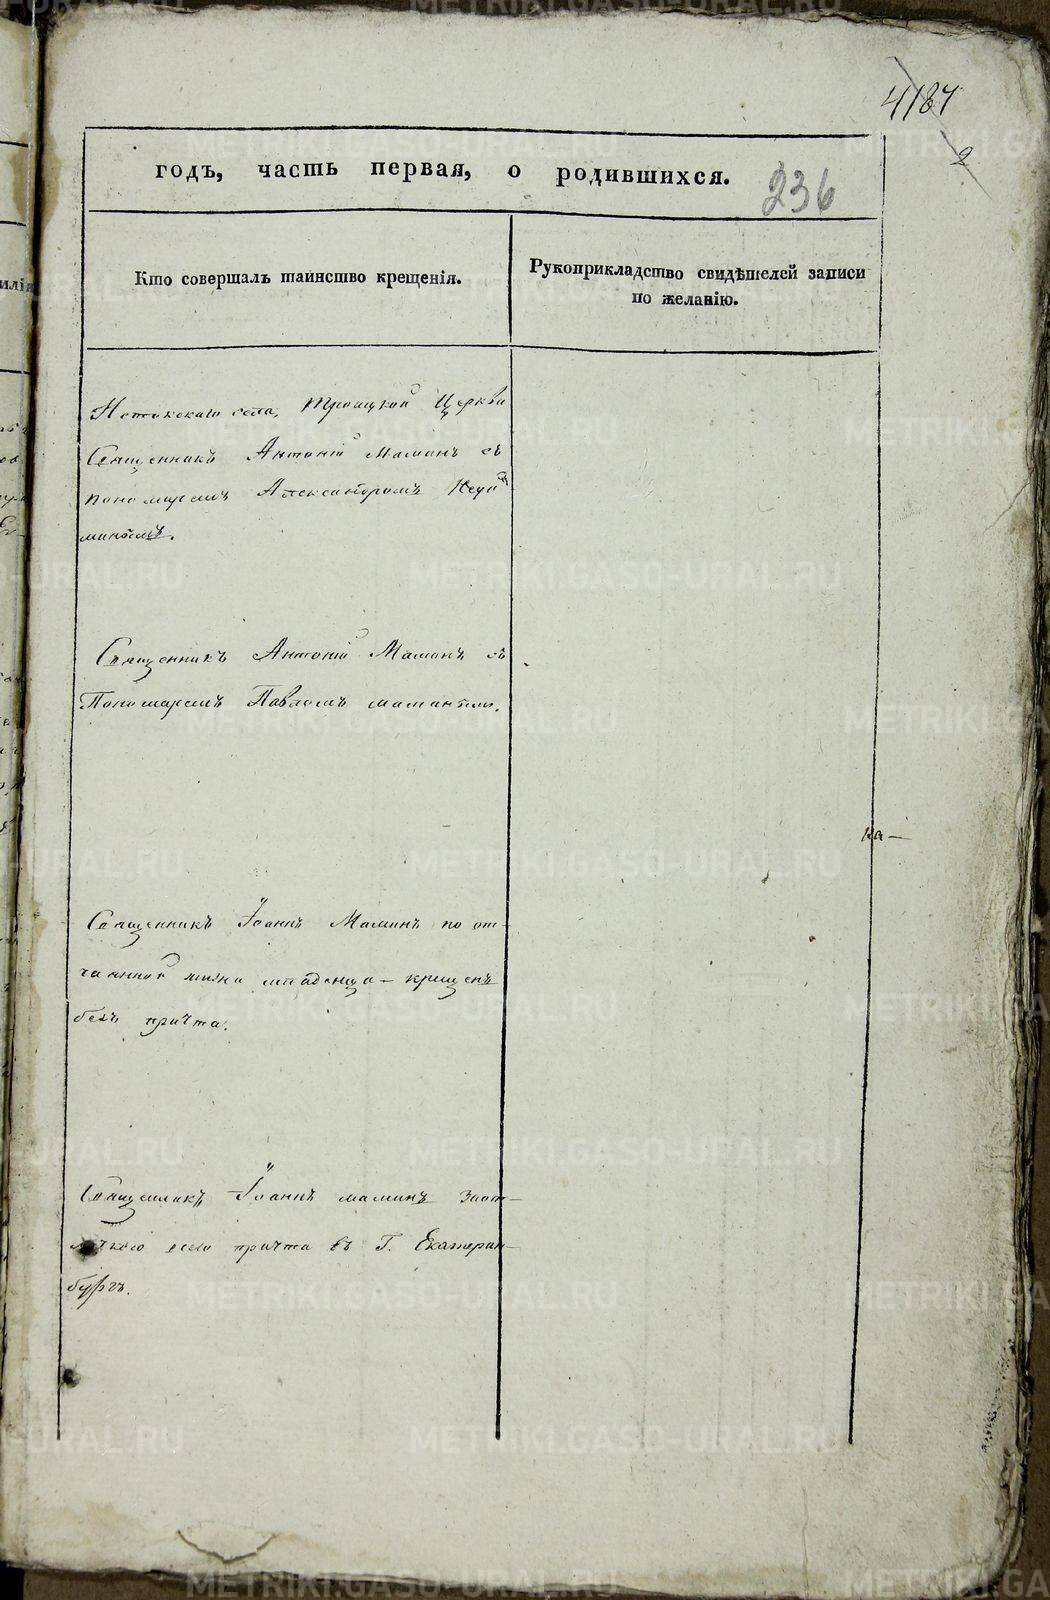 4187
2
годъ, часть первая, о родившихся.
236
Кто совершалъ таинство крещенія.
Рукоприкладство свидѣтелей записи
по желанію.
села, Троицкой Церкви
Священникъ Антоній Маминъ съ
пономаремъ Александромъ
Священникъ Антоній Маминъ съ
Пономаремъ Павломъ
на—
Священникъ Іоаннъ Маминъ по от-
чаянной жизни младенца – крещенъ
безъ причта.
Священникъ Іоаннъ маминъ
всего причта въ Г. Екатерин-
бургъ.
METRIKI.GASO-URAL.RU